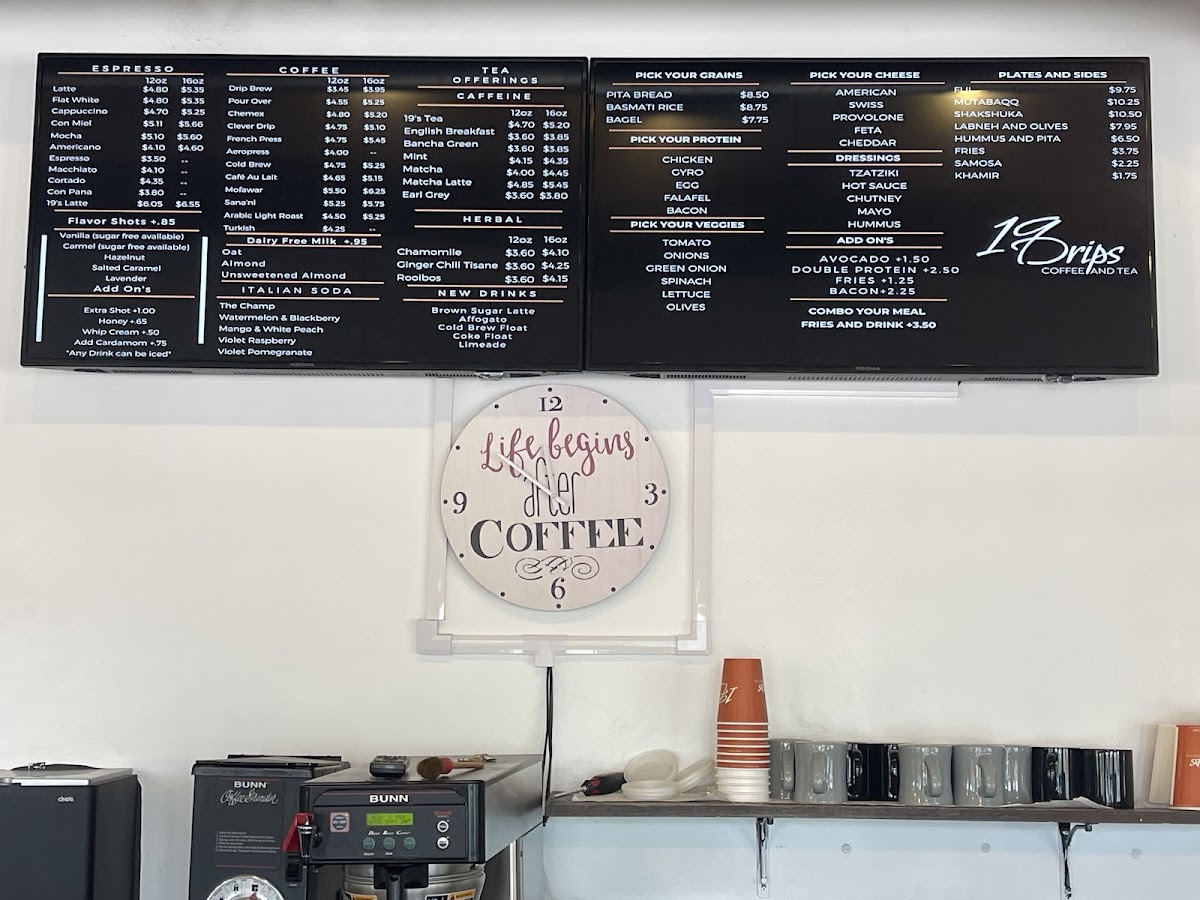 ESPRESSO
12oz 16oz
Latte $4.80 $5.35
Flat White $4.80 $5.35
Cappuccino $4.70 $5.25
Con Miel $5.11 $5.66
Mocha $5.10 $5.60
Americano $4.10 $4.60
Espresso $3.50 --
Macchiato $4.10 --
Cortado $4.35 --
Con Pana $3.80 --
19's Latte $6.05 $6.55
Flavor Shots +.85
Vanilla (sugar free available)
Carmel (sugar free available)
Hazelnut
Salted Caramel
Lavender
Add On's
Extra Shot +1.00
Honey +.65
Whip Cream +.50
Add Cardamom +.75
"Any Drink can be iced"
COFFEE
12oz 16oz
Drip Brew $3.45 $3.95
Pour Over $4.55 $5.25
Chemex $4.80 $5.20
Clever Drip $4.75 $5.10
French Press $4.75 $5.45
Aeropress $4.00 --
Cold Brew $4.75 $5.25
Café Au Lait $4.65 $5.15
Mofawar $5.50 $6.25
Sana'ni $5.25 $5.75
Arabic Light Roast $4.50 $5.25
Turkish $4.25 --
Dairy Free Milk +.95
Oat
Almond
Unsweetened Almond
ITALIAN SODA
The Champ
Watermelon & Blackberry
Mango & White Peach
Violet Raspberry
Violet Pomegranate
TEA
OFFERINGS
CAFFEINE
12oz 16oz
19's Tea $4.70 $5.20
English Breakfast $3.60 $3.85
Bancha Green $3.60 $3.85
Mint $4.15 $4.35
Matcha $4.00 $4.45
Matcha Latte $4.85 $5.45
Earl Grey $3.60 $3.80
HERBAL
12oz 16oz
Chamomile $3.60 $4.10
Ginger Chili Tisane $3.60 $4.25
Rooibos $3.60 $4.15
NEW DRINKS
Brown Sugar Latte
Affogato
Cold Brew Float
Coke Float
Limeade
INSIGNIA
PICK YOUR GRAINS
PITA BREAD $8.50
BASMATI RICE $8.75
BAGEL $7.75
PICK YOUR PROTEIN
CHICKEN
GYRO
EGG
FALAFEL
BACON
PICK YOUR VEGGIES
TOMATO
ONIONS
GREEN ONION
SPINACH
LETTUCE
OLIVES
PICK YOUR CHEESE
AMERICAN
SWISS
PROVOLONE
FETA
CHEDDAR
DRESSINGS
TZATZIKI
HOT SAUCE
CHUTNEY
MAYO
HUMMUS
ADD ON'S
AVOCADO +1.50
DOUBLE PROTEIN +2.50
FRIES +1.25
BACON+2.25
COMBO YOUR MEAL
FRIES AND DRINK +3.50
PLATES AND SIDES
FUL $9.75
MUTABAQQ $10.25
SHAKSHUKA $10.50
LABNEH AND OLIVES $7.95
HUMMUS AND PITA $6.50
FRIES $3.75
SAMOSA $2.25
KHAMIR $1.75
19Drips
COFFEE AND TEA
INSIGNIA
12
Life begins
after
9 3
COFFEE
6
BUNN
Coffee Grinder
BUNN